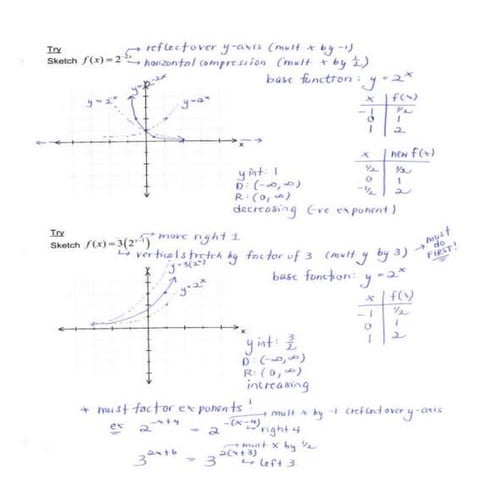 Try → reflect over y-axis (mult x by -1)
Sketch f(x) = 2^-2x → horizontal compression (mult x by 1/2)
base function: y = 2^x
y=2^-2x
y=2^x
x | f(x)
-1 | 1/2
0 | 1
1 | 2
x
x | new f(x)
1/2 | 1/2
0 | 1
-1/2 | 2
y int: 1
D: (-∞, ∞)
R: (0, ∞)
decreasing (-ve exponent)
Try → move right 1
Sketch f(x) = 3(2^x-1)
→ vertical stretch by factor of 3 (mult y by 3) → must do FIRST!
y=3(2^x)
y=2^x
base function: y = 2^x
x | f(x)
-1 | 1/2
0 | 1
1 | 2
x
y int: 3/2
D: (-∞, ∞)
R: (0, ∞)
increasing
* must factor exponents!
→ mult x by -1 (reflect over y-axis
ex 2^-x+4 = 2^-(x-4) → right 4
→ mult x by 1/2
3^2x+6 = 3^2(x+3) → left 3